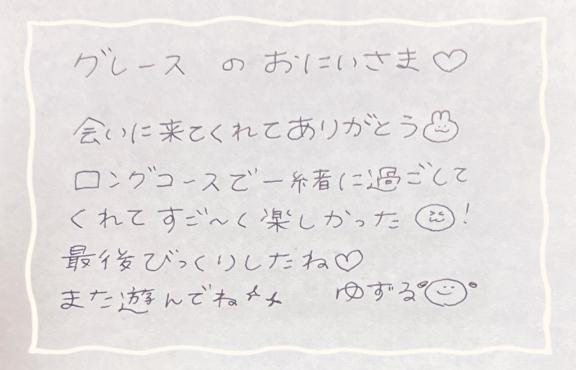 グレース の おにいさま♡
会いに来てくれてありがとう
ロングコースで一緒に過ごして
くれてすご〜く楽しかった!
最後びっくりしたね♡
また遊んでね☆☆ ゆずる